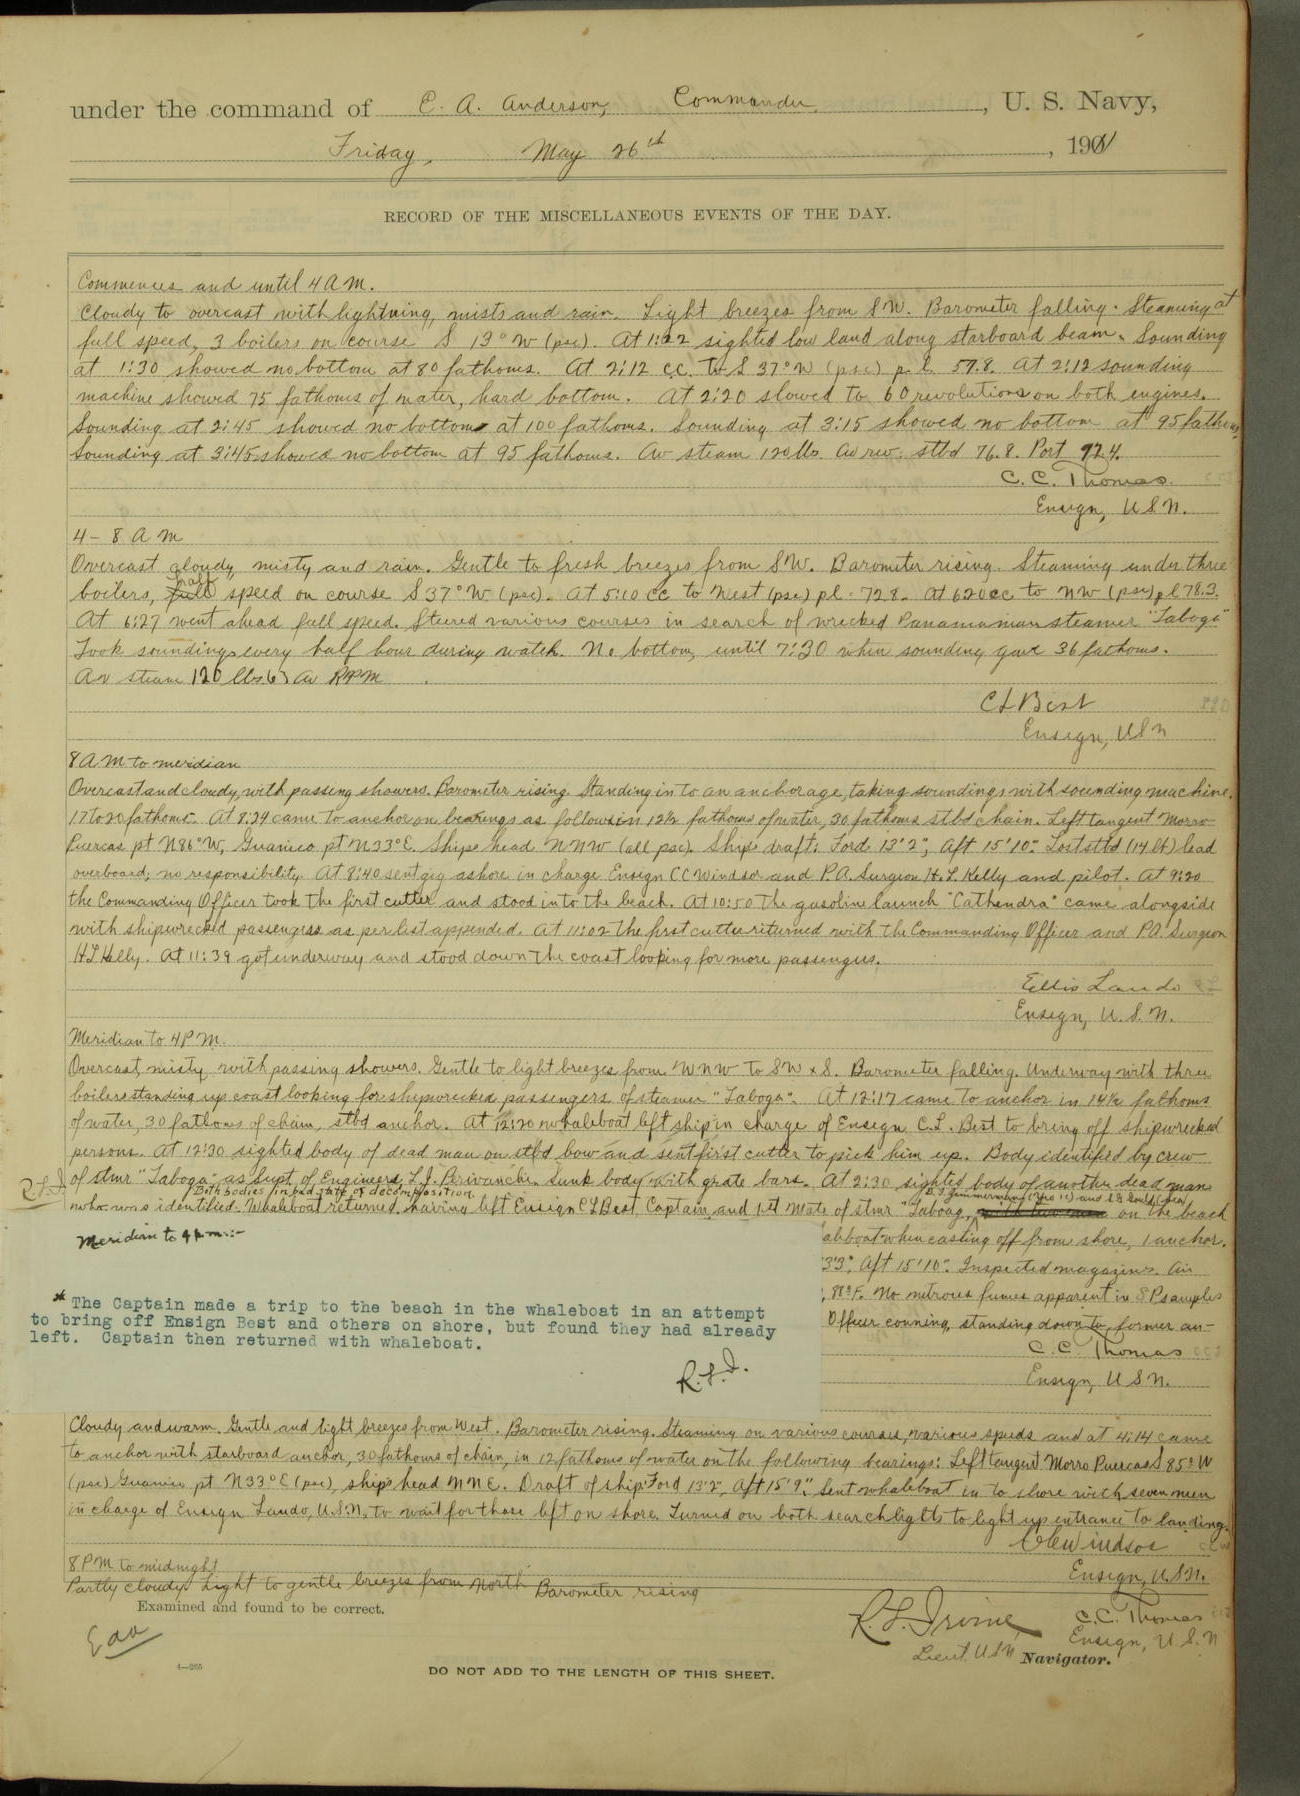 under the command of E. A. Anderson, Commander, U. S. Navy,
Friday, May 26th, 1911
RECORD OF THE MISCELLANEOUS EVENTS OF THE DAY.
Commences and until 4 A M.
Cloudy to overcast with lightning, mists and rain. Light breezes from SW. Barometer falling. Steaming at
full speed, 3 boilers on course S 13° W (psc). At 1:22 sighted low land along starboard beam. Sounding
at 1:30 showed no bottom at 80 fathoms. At 2:12 c.c. to S 37° W (psc) p.l. 57.8. At 2:12 sounding
machine showed 75 fathoms of water, hard bottom. At 2:20 slowed to 60 revolutions on both engines.
Sounding at 2:45 showed no bottom at 100 fathoms. Sounding at 3:15 showed no bottom at 95 fathoms.
Sounding at 3:45 showed no bottom at 95 fathoms. Av steam 120 lbs. Av rev: stbd 76.8. Port 92.4.
C. C. Thomas
Ensign, U.S.N.
4 - 8 A M
Overcast cloudy, misty and rain. Gentle to fresh breezes from SW. Barometer rising. Steaming under three
boilers, half speed on course S 37° W (psc). At 5:10 cc to West (psc) pl - 72.8. At 6:20 cc to NW (psc) pl 78.3.
At 6:27 went ahead full speed. Steered various courses in search of wrecked Panamanian steamer "Taboga"
Took soundings every half hour during watch. No bottom, until 7:30 when sounding gave 36 fathoms.
Av steam 120 lbs Av RPM
C L Best
Ensign, USN
8 A M to meridian
Overcast and cloudy, with passing showers. Barometer rising. Standing in to an anchorage, taking soundings with sounding machine.
17 to 20 fathoms. At 8:34 came to anchor on bearings as follows in 12½ fathoms of water, 30 fathoms stbd chain. Left tangent Morro
Puercas pt N86°W, Guanico pt N33°E. Ships head NNW (all psc). Ships draft: Ford 13'2", Aft 15'10". Lost stbd (14 lb) lead
overboard; no responsibility. At 8:40 sent gig ashore in charge Ensign CC Windsor and P.A. Surgeon H. L Kelly and pilot. At 9:20
the Commanding Officer took the first cutter and stood in to the beach. At 10:50 the gasoline launch "Cathendra" came alongside
with shipwrecked passengers as per list appended. At 11:02 the first cutter returned with the Commanding Officer and P.A. Surgeon
H L Kelly. At 11:39 got underway and stood down the coast looking for more passengers.
Ellis Lando
Ensign, U. S. N.
Meridian to 4 P M.
Overcast, misty with passing showers. Gentle to light breezes from WNW to SW x S. Barometer falling. Underway with three
boilers standing up coast looking for shipwrecked passengers of steamer "Taboga". At 12:17 came to anchor in 14½ fathoms
of water, 30 fathoms of chain, stbd anchor. At 12:20 whaleboat left ship in charge of Ensign C.L. Best to bring off shipwrecked
persons. At 12:30 sighted body of dead man on stbd bow and sent first cutter to pick him up. Body identified by crew
R.L.I. of stmr "Taboga" as Supt. of Engineers, L.J. Perivanchi. Sunk body with grate bars. At 2:30 sighted body of another dead man
Both bodies in bad state of decomposition.
who was identified. Whaleboat returned, having left Ensign CL Best, Captain and 1st Mate of stmr "Taboag, on the beach
Meridian to 4 p m:-
aleboat when casting off from shore, 1 anchor.
Aft 15'10". Inspected magazines. Air
88°F. No nitrous fumes apparent in S P samples
* The Captain made a trip to the beach in the whaleboat in an attempt
to bring off Ensign Best and others on shore, but found they had already
left. Captain then returned with whaleboat.
R.L.I.
Officer conning, standing down to former an-
C. C. Thomas
Ensign, U S N.
Cloudy and warm. Gentle and light breezes from West. Barometer rising. Steaming on various courses, various speeds and at 4:14 came
to anchor with starboard anchor, 30 fathoms of chain, in 12 fathoms of water on the following bearings: Left tangent Morro Puercas S 85° W
(psc) Guanico pt N33°E (psc), ship's head NNE. Draft of ship: Ford 13'2", Aft 15'9". Sent whaleboat in to shore with seven men
in charge of Ensign Lando, U.S.N, to wait for those left on shore. Turned on both searchlights to light up entrance to landing.
CC Windsor
Ensign, U.S.N.
8 P M to midnight
Partly cloudy. Light to gentle breezes from North Barometer rising
C. C. Thomas
Ensign, U. S. N
Examined and found to be correct.
Eaa
R. L. Irvine
Lieut. USN Navigator.
4—265
DO NOT ADD TO THE LENGTH OF THIS SHEET.